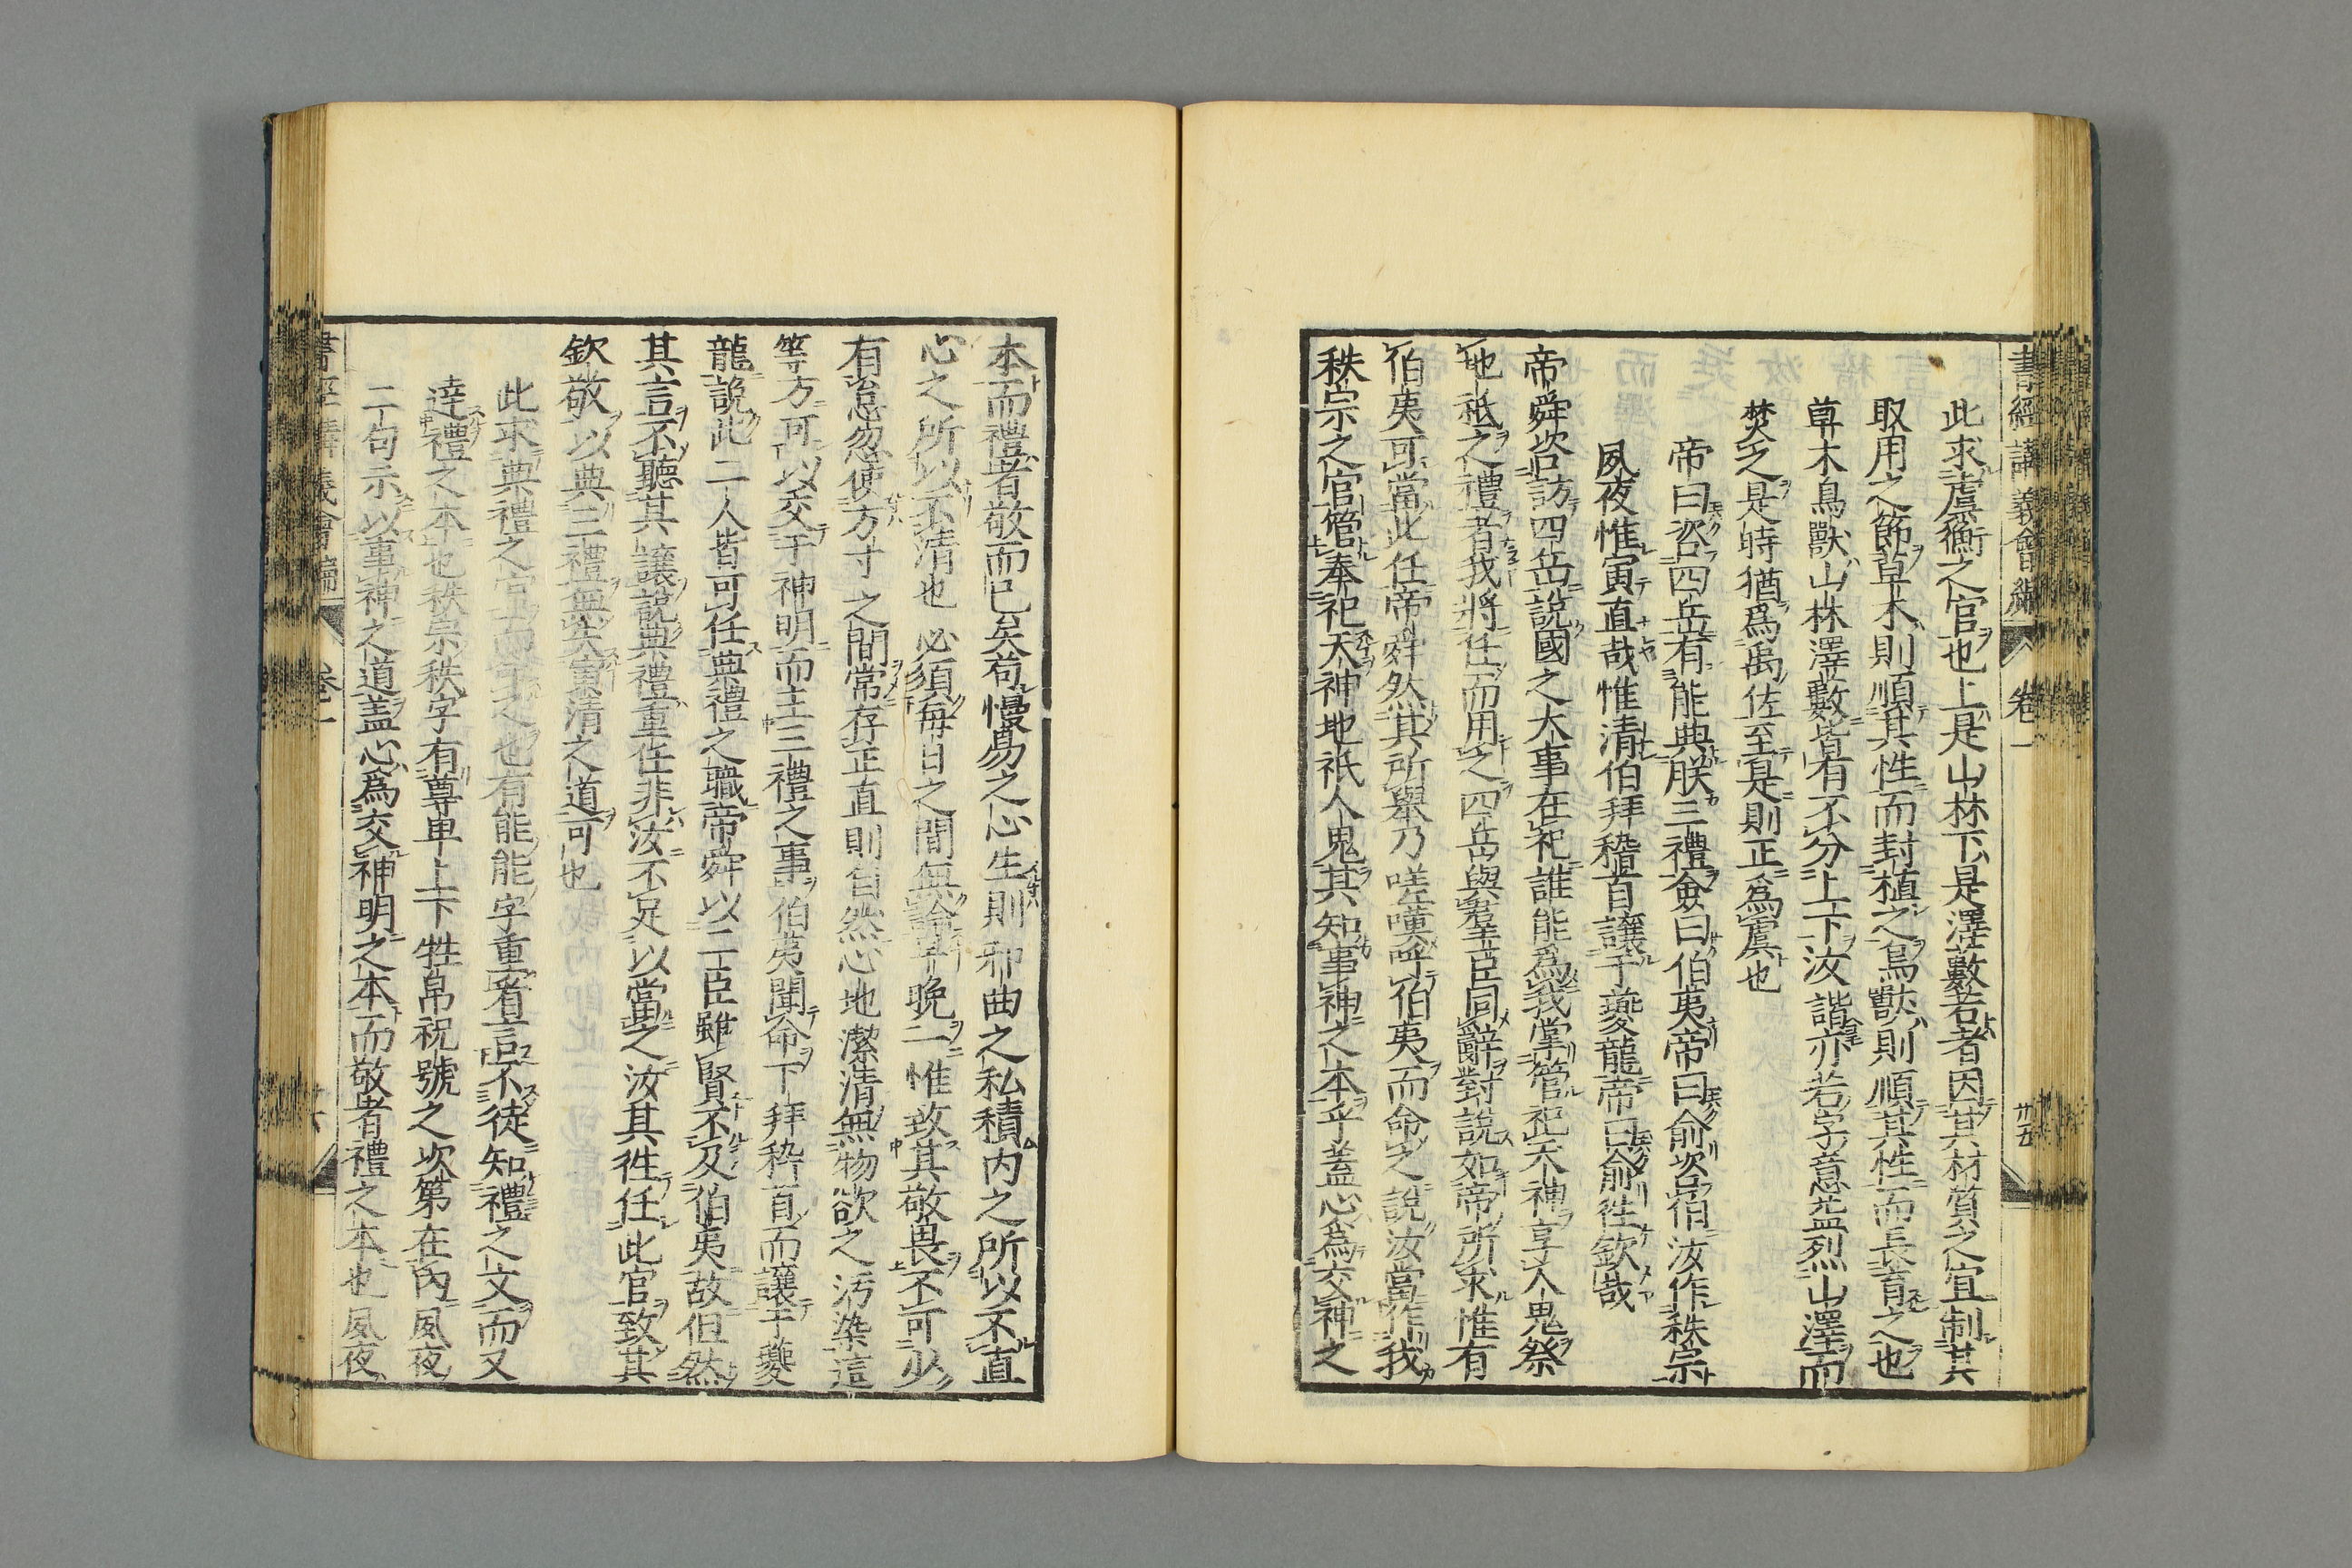 書經講義會編 卷一 廿五
此求虞衡之官也上是山林下是澤藪若者因其材質之宜制其
取用之節草木則順其性而封植之鳥獸則順其性而長育之也
草木鳥獸山林澤藪皆有不分上下汝諧亦若字意益烈山澤而
焚之是時猶爲禹佐至是則正爲虞也
帝曰咨四岳有能典朕三禮僉曰伯夷帝曰俞咨伯汝作秩宗
夙夜惟寅直哉惟清伯拜稽首讓于夔龍帝曰俞徃欽哉
帝舜咨訪四岳說國之大事在祀誰能爲我掌管祀天神享人鬼祭
地祗之禮者我將任而用之四岳與羣臣同辭對說如帝所求惟有
伯夷可當此任帝舜然其所舉乃嗟嘆呼伯夷而命之說汝當作我
秩宗之官管奉祀天神地祇人鬼其知事神之本乎蓋心爲交神之
本而禮者敬而已矣苟慢易之心生則邪曲之私積內之所以不直
心之所以不清也必須每日之間無論早晚一惟致其敬畏不可少
有怠忽使方寸之間常存正直則自然心地潔清無物欲之汚染這
等方可以交于神明而主三禮之事伯夷聞命下拜稽首而讓于夔
龍說此二人皆可任典禮之職帝舜以二臣雖賢不及伯夷故但然
其言不聽其讓說典禮重任非汝不足以當之汝其徃任此官致其
欽敬以典三禮無失寅清之道可也
此求典禮之官而命之也有能能字重看言不徒知禮之文而又
達禮之本也秩宗秩字有尊卑上下牲帛祝號之次第在內夙夜
二句示以事神之道盖心爲交神明之本而敬者禮之本也夙夜
書經講義會編 卷一